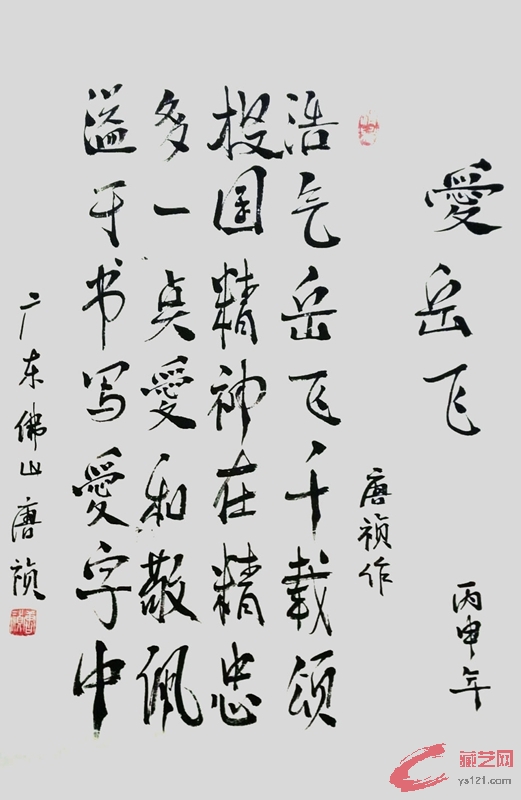 愛岳飞
丙申年
唐祯作
浩气岳飞千载颂
报国精神在精忠
多一点爱和敬佩
溢于书写爱字中
广东佛山唐祯
藏艺网
ys121.com